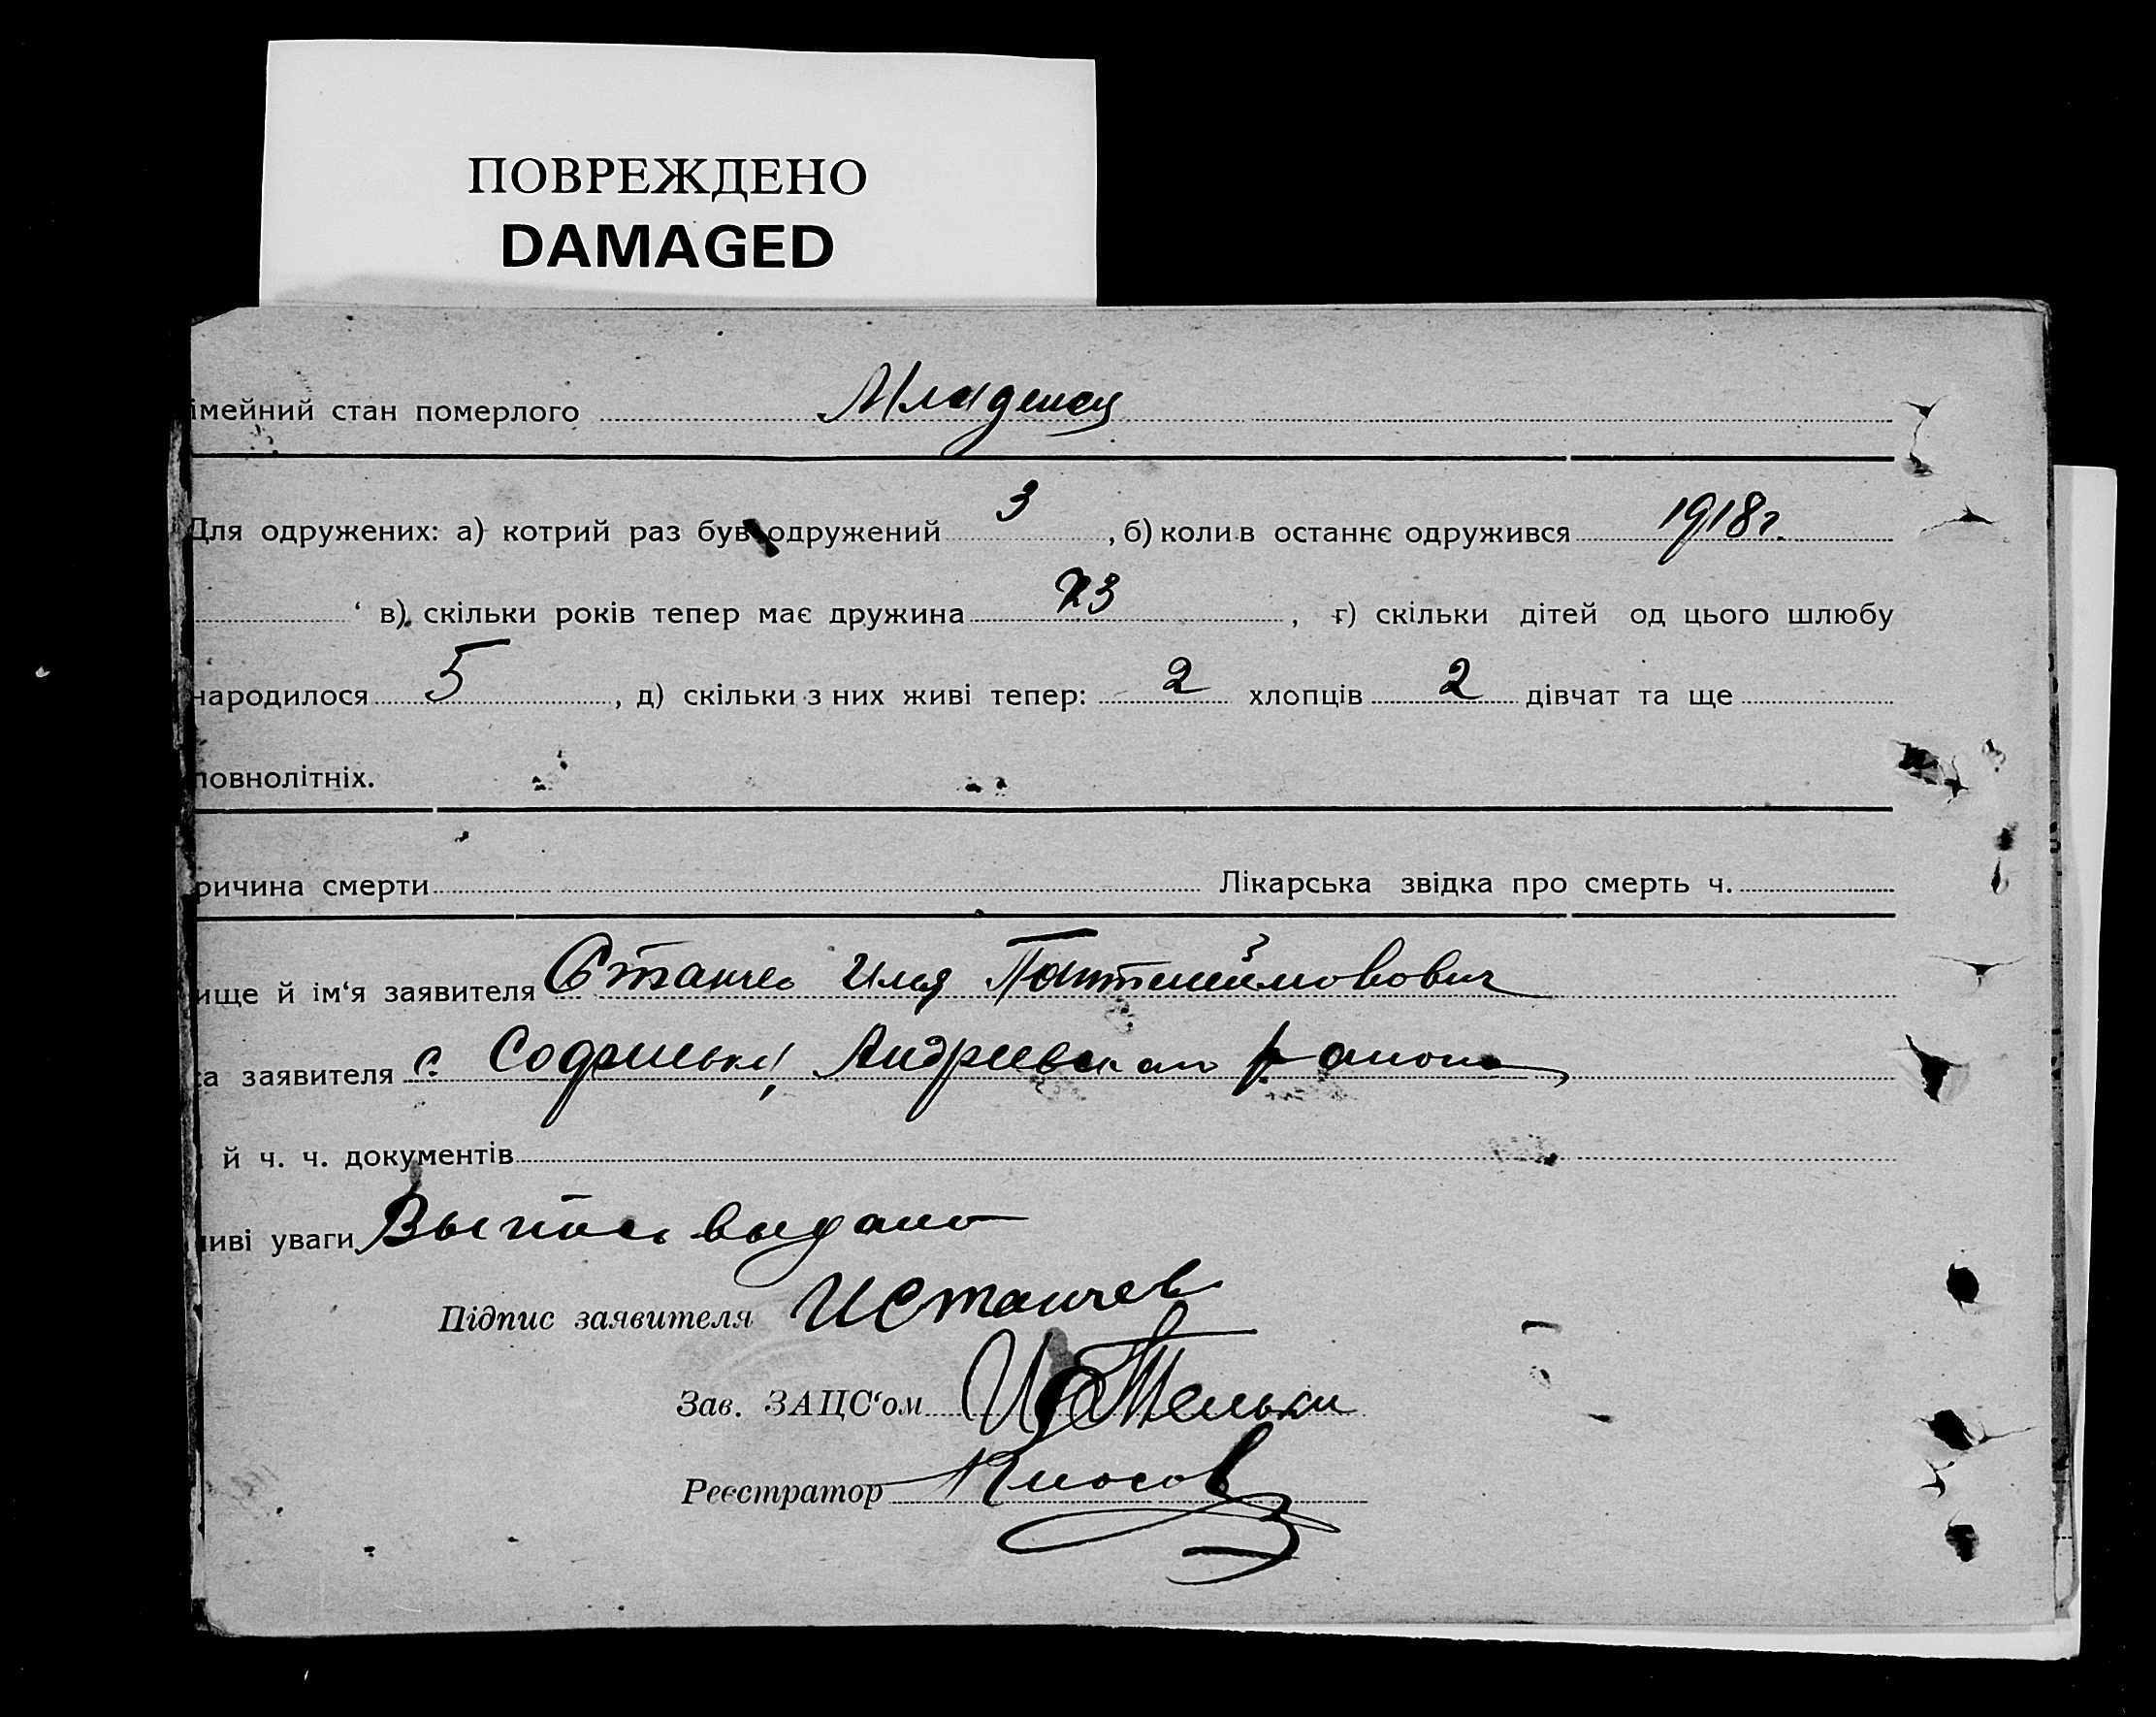 ПОВРЕЖДЕНО
DAMAGED
імейний стан померлого Младенец
Для одружених: а) котрий раз був одружений 3, б) коли в останнє одружився 1918 г.
в) скільки років тепер має дружина 23, г) скільки дітей од цього шлюбу
народилося 5, д) скільки з них живі тепер: 2 хлопців 2 дівчат та ще
повнолітніх.
ричина смерти Лікарська звідка про смерть ч.
ище й ім‘я заявителя Станчев Илья
ка заявителя с. Андреевскаго района
й ч. ч. документів
иві уваги выдано
Підпис заявителя И Станчев
Зав. ЗАЦС‘ом
Реєстратор